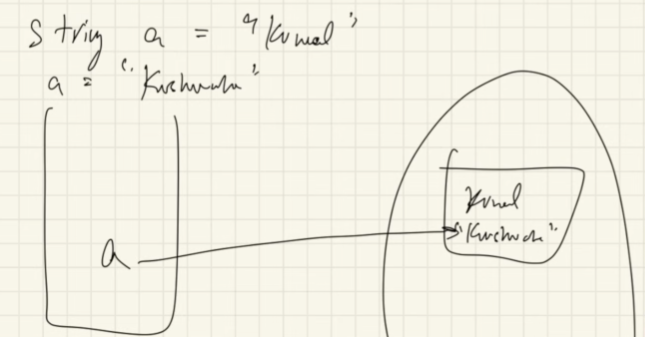 String a = "Kunal"
a = "Kushwaha"
a
Kunal
"Kushwaha"